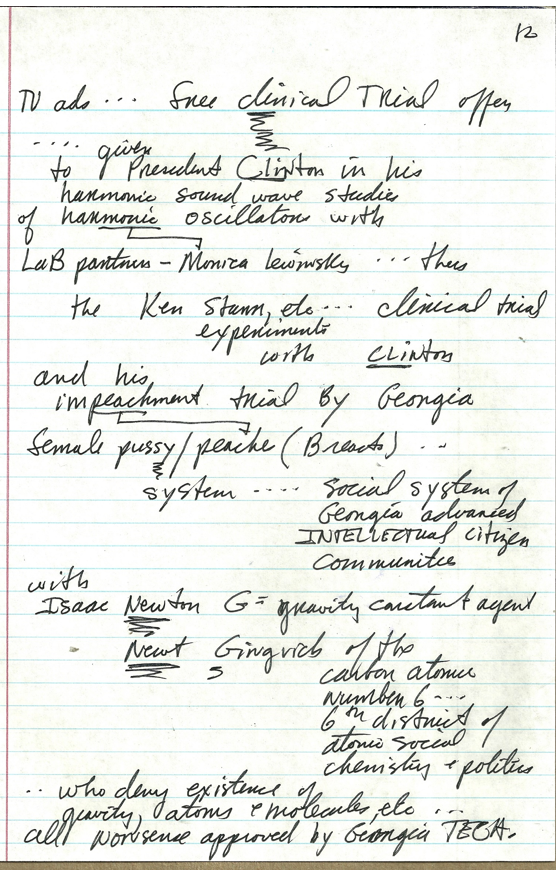 12
TV ads ... Free clinical Trial offer
.... given
to President Clinton in his
harmonic sound wave studies
of harmonic oscillators with
LaB partner - Monica Lewinsky ... thus
the Ken Starr, etc ... clinical trial
experiments
with CLinton
and his
impeachment trial By Georgia
female pussy/peache (Breasts) ..
system .... Social system of
Georgia advanced
INTELLECTUAL citizen
communities
with
Isaac Newton G = gravity constant agent
Newt Gingrich of the
carbon atomic
number 6 ...
6th district of
atomic social
chemistry + politics
.. who deny existence of
gravity, atoms + molecules, etc ...
all nonsense approved by Georgia TECH.